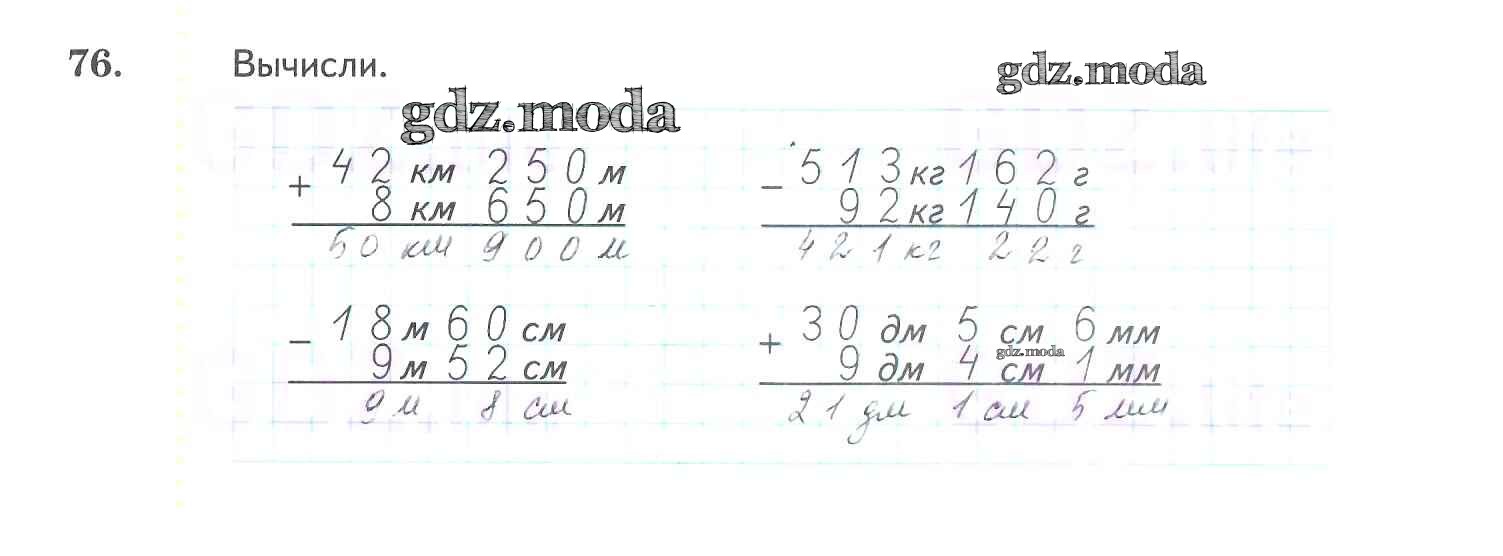 76. Вычисли.
gdz.moda
gdz.moda
+ 42 км 250 м
8 км 650 м
50 км 900 м
- 513 кг 162 г
92 кг 140 г
421 кг 22 г
- 18 м 60 см
9 м 52 см
9 м 8 см
+ 30 дм 5 см 6 мм
gdz.moda
9 дм 4 см 1 мм
21 дм 1 см 5 мм